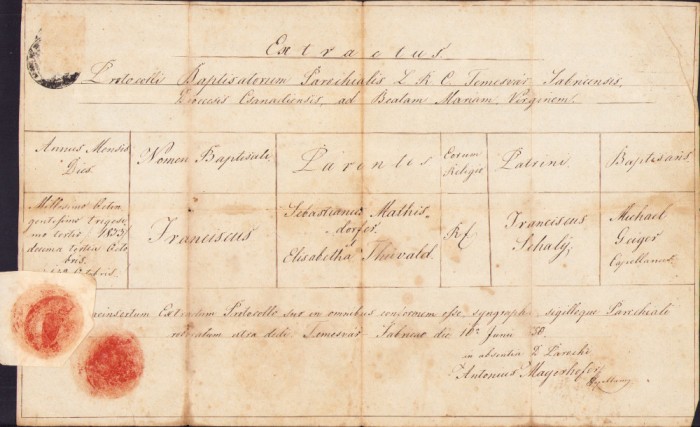 Extractus
Protocolli Baptisatorum Parochialis L. R. C. Temesvar Fabricensis,
Diocesis Csanadiensis, ad Beatam Mariam Virginem.
Annus Mensis
Dies.
Nomen Baptisati.
Parentes
Eorum
Religio
Patrini.
Baptisans
Millesimo Octin
gentesimo trigesi
mo tertio 1833
decima tertia Octo
bris.
Octobris
Franciscus
Sebastianus Mathis-
dorfer
Elisabetha
RC
Franciscus
Sehaly,
Michael
Geiger
Capellanus
Extractum Protocollo suo in omnibus conformem esse, syngrapha sigilloque Parochiali
dedi Temesvar Fabricae die 10a Juny 50
in absentia D Parochi
Antonius Mayerhofer